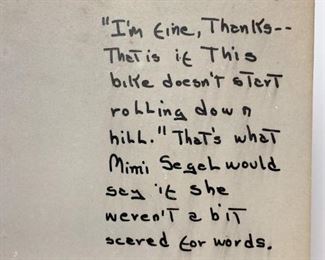 "I'm fine, Thanks--
That is if This
bike doesn't start
rolling down
hill." That's what
Mimi Segel would
say if she
weren't a bit
scared for words.